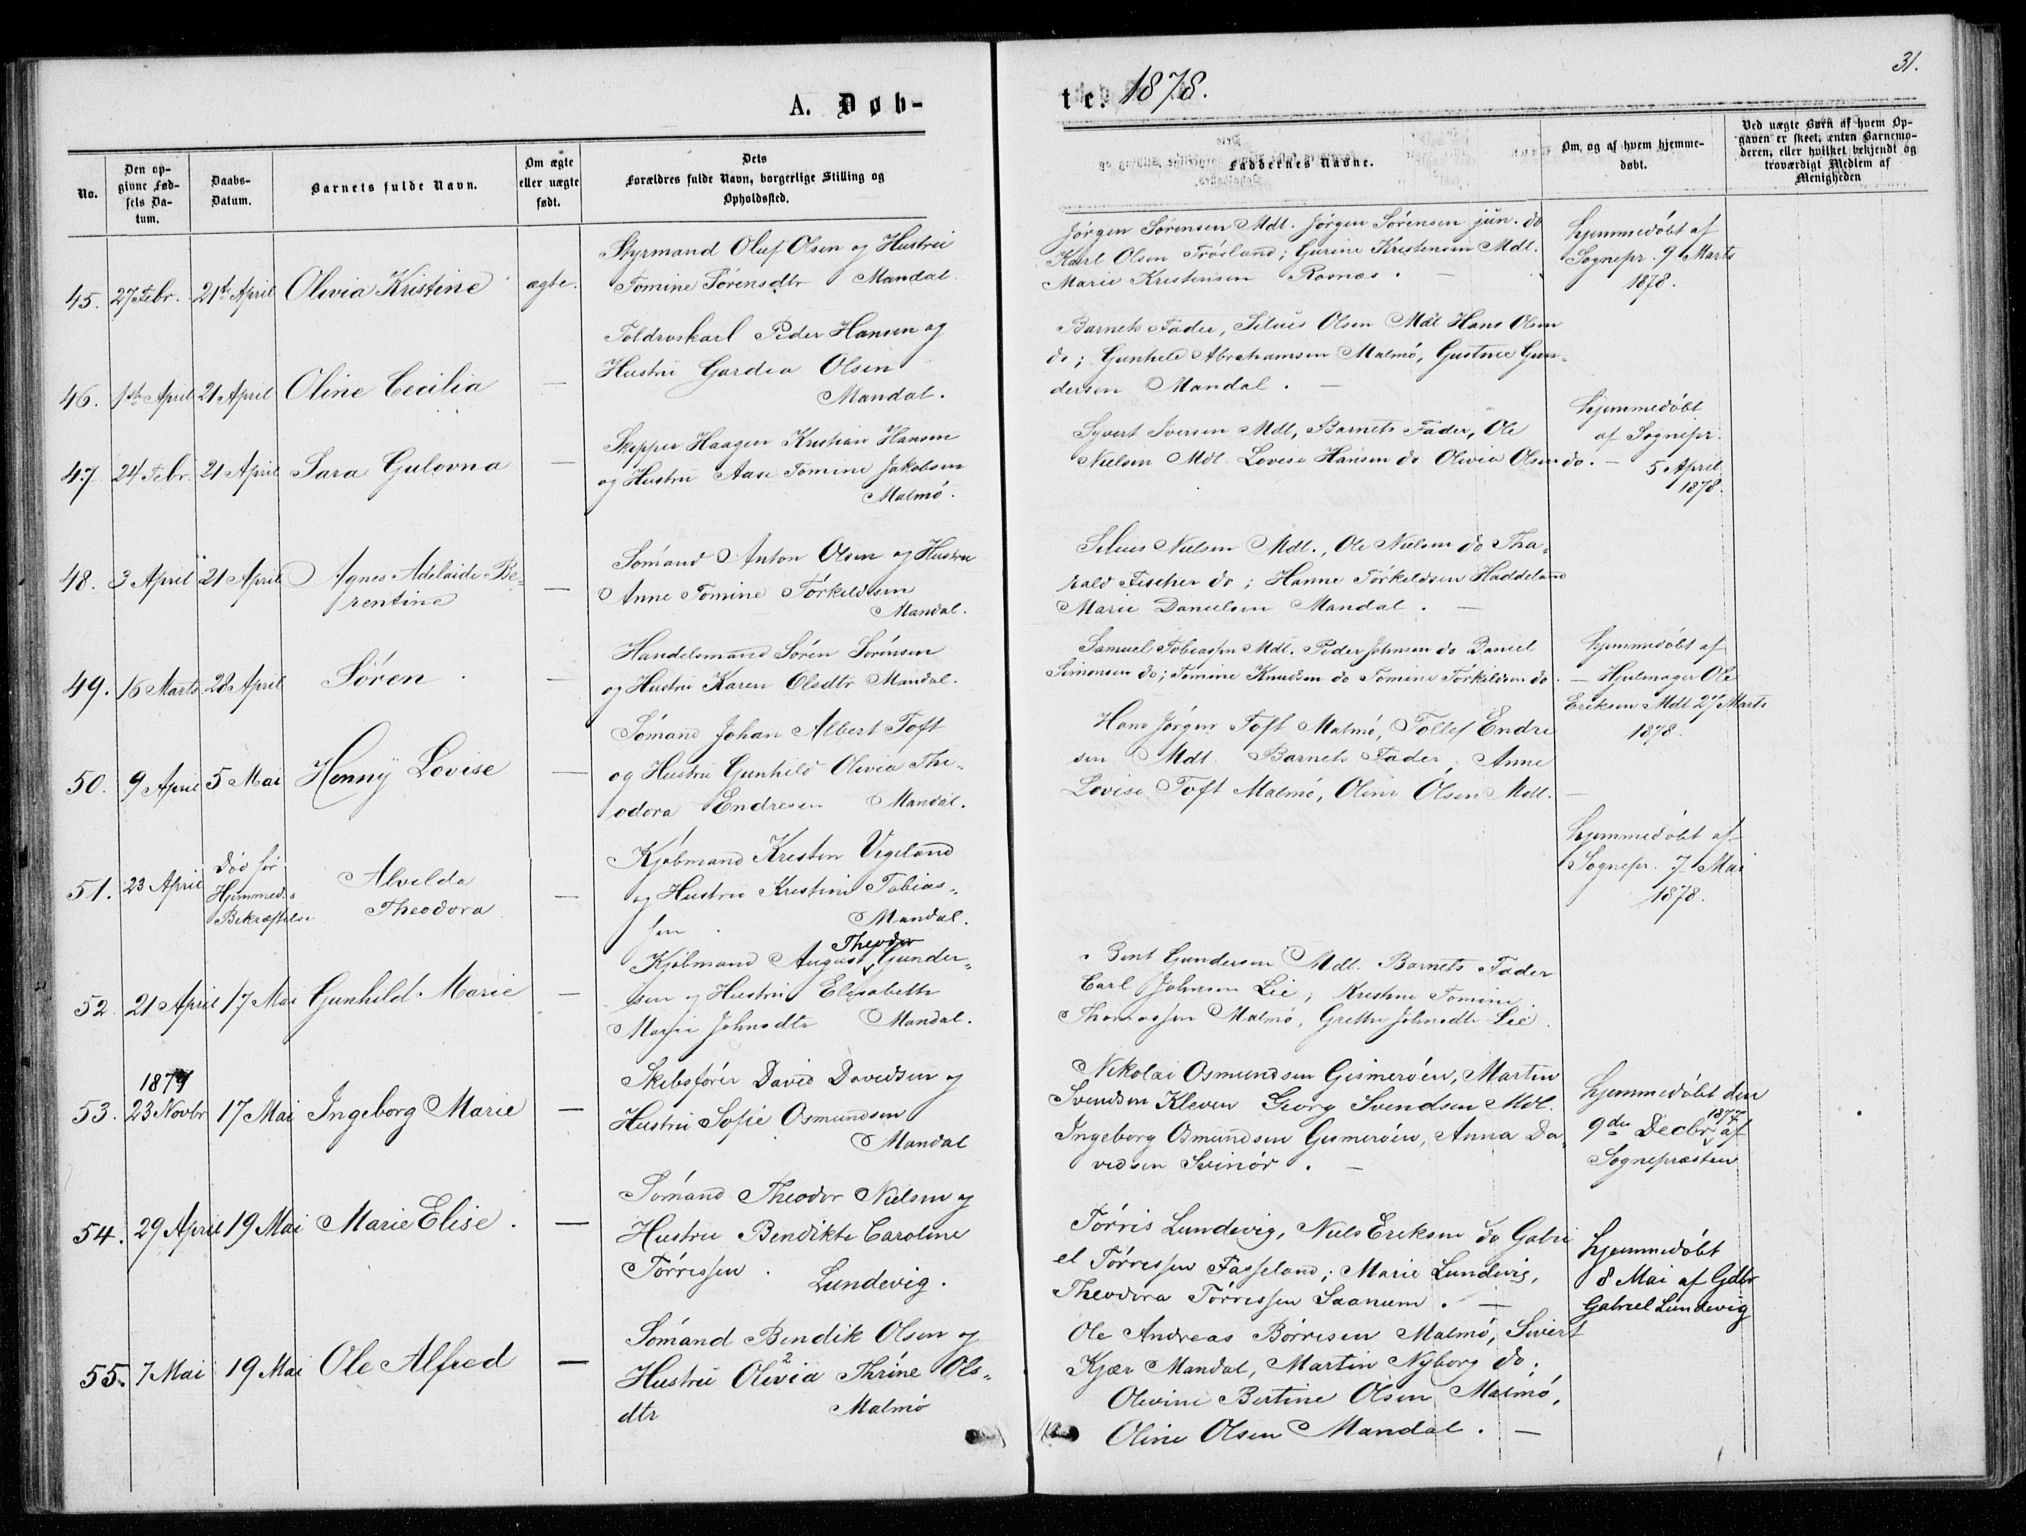 31.
A. Døb-
te. 1878.
No.
Den op-
givne Fød-
sels Da-
tum.
Daabs-
Datum.
Barnets fulde Navn.
Om ægte
eller uægte
født.
Dets
Forældres fulde Navn, borgerlige Stilling og
Opholdssted.
Faddernes Navne.
Om, og af hvem hjemme-
døbt.
Ved uægte Børn af hvem Op-
gaven er skeet, enten Barnemo-
deren, eller hvilket bekjendt og
troværdigt Medlem af
Menigheden
45. 27 Febr. 21de April Olivia Kristine ægte.
Styrmand Oluf Olsen og Hustru
Tomine Sørensdtr Mandal.
Jørgen Sørensen Mdl. Jørgen Sørensen jun. do
Karl Olsen Frøsland; Gurine Kristensen Mdl.
Marie Kristensen Rosnæs. —
Hjemmedøbt af
Sognepr. 9 Marts
1878.
46. 1ste April 21 April Oline Cecilia —
Toldroskarl Peder Hansen og
Hustru Gardea Olsen
Mandal.
Barnets Fader, Silius Olsen Mdl Hans Olsen
do; Gunhild Abrahamsen Malmø, Gustave Gun-
dersen Mandal. —
47. 24 Febr. 21 April Sara Gulovna —
Skipper Haagen Kristian Hansen
og Hustru Aase Tomine Jakobsen
Malmø.
Syvert Iversen Mdl, Barnets Fader, Ole
Nielsen Mdl. Lovise Hansen do Olivia Olsen do. —
Hjemmedøbt
af Sognepr.
5 April
1878.
48. 3 April 21 April Agnes Adelaide Be-
rentine —
Sømand Anton Olsen og Hustru
Anne Tomine Tørkildsen
Mandal.
Silius Nielsen Mdl., Ole Nielsen do Tha-
rald Fischer do; Hanne Tørkeldsen Haddeland
Marie Danielsen Mandal. —
49. 16 Marts 28 April Søren. —
Handelsmand Søren Sørensen
og Hustru Karen Olsdtr Mandal.
Samuel Tobiassen Mdl. Peder Johnsen do Daniel
Simonsen do; Tomine Knudsen do Tomine Tørkildsen do. —
Hjemmedøbt af
Hjulmager Ole
Eriksen Mdl 27 Marts
1878.
50. 9 April 5 Mai Henny Lovise —
Sømand Johan Albert Toft
og Hustru Gunhild Olivia The-
odora Endresen Mandal.
Hans Jørgen Toft Malmø, Tollef Endre
sen Mdl. Barnets Fader; Anne
Lovise Toft Malmø, Oline Olsen Mdl. —
51. 23 April Død før
Hjemmed.s
Bekræftelse
Alvilda
Theodora —
Kjøbmand Kristen Vigeland
og Hustru Kristine Tobias-
sen. Mandal.
Hjemmedøbt af
Sognepr. 7 Mai
1878.
52. 21 April 17 Mai Gunhild Marie —
Theodor
Kjøbmand August Gunder-
sen og Hustru Elisabeth
Marie Johnsdtr Mandal.
Bent Gundersen Mdl. Barnets Fader
Carl Johnsen Lie; Kristine Tomine
Thomassen Malmø, Grethe Johnsdtr Lie.
1877
53. 23 Novbr 17 Mai Ingeborg Marie —
Skibsfører David Davidsen og
Hustru Sofie Osmundsen
Mandal
Nikolai Osmundsen Gismerøen, Martin
Svendsen Kleven Georg Svendsen Mdl.
Ingeborg Osmundsen Gismerøen, Anna Da-
vidsen Svinør. —
Hjemmedøbt den
9de Decbr 1877 af
Sognepræsten
54. 29 April 19 Mai Marie Elise. —
Sømand Theodor Nielsen og
Hustru Bendikte Caroline
Tørrissen. Lundevig.
Tørris Lundevig, Niels Eriksen do Gabri
el Tørrissen Fasseland; Marie Lundevig,
Theodora Tørrissen Saanum. —
Hjemmedøbt
8 Mai af Gdbr
Gabriel Lundevig
55. 7 Mai 19 Mai Ole Alfred —
Sømand Bendik Olsen og
Hustru Olivia Thrine Ols-
dtr Malmø
Ole Andreas Børresen Malmø, Sivert
Kjær Mandal, Martin Nyborg do;
Olevine Bertine Olsen Malmø,
Oline Olsen Mandal. —